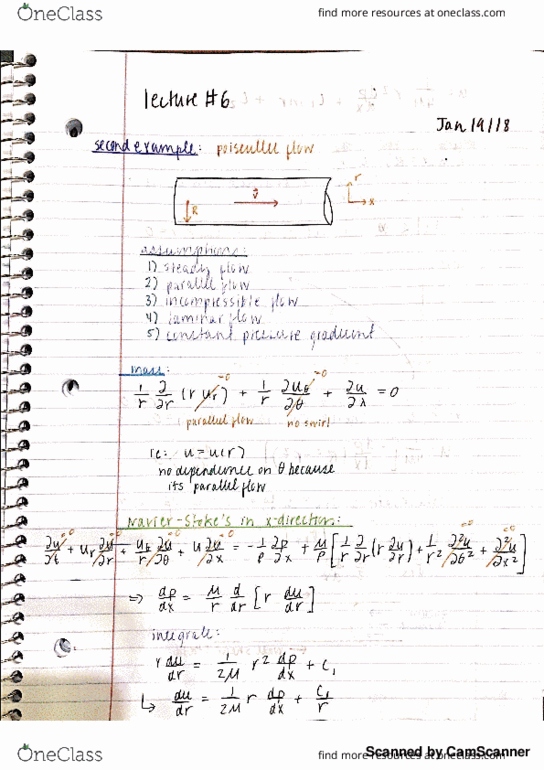 OneClass
find more resources at oneclass.com
lecture #6
Jan 19/18
second example: poiseullei flow
R
v̄
r
x
assumptions:
1) steady flow
2) parallel flow
3) incompressible flow
4) laminar flow
5) constant pressure gradient
mass:
1/r ∂/∂r (r u_r) + 1/r ∂u_θ/∂θ + ∂u/∂x = 0
=0 =0
parallel flow no swirl
ie: u = u(r)
no dependence on θ because
its parallel flow
Navier-Stoke's in x-direction:
∂u/∂t + u_r ∂u/∂r + u_θ/r ∂u/∂θ + u ∂u/∂x = -1/ρ ∂p/∂x + μ/ρ [1/r ∂/∂r (r ∂u/∂r) + 1/r² ∂²u/∂θ² + ∂²u/∂x²]
⇒ dp/dx = μ/r d/dr [r du/dr]
integrate:
r du/dr = 1/2μ r² dp/dx + C₁
↳ du/dr = 1/2μ r dp/dx + C₁/r
OneClass
find more resources at oneclass.com
Scanned by CamScanner